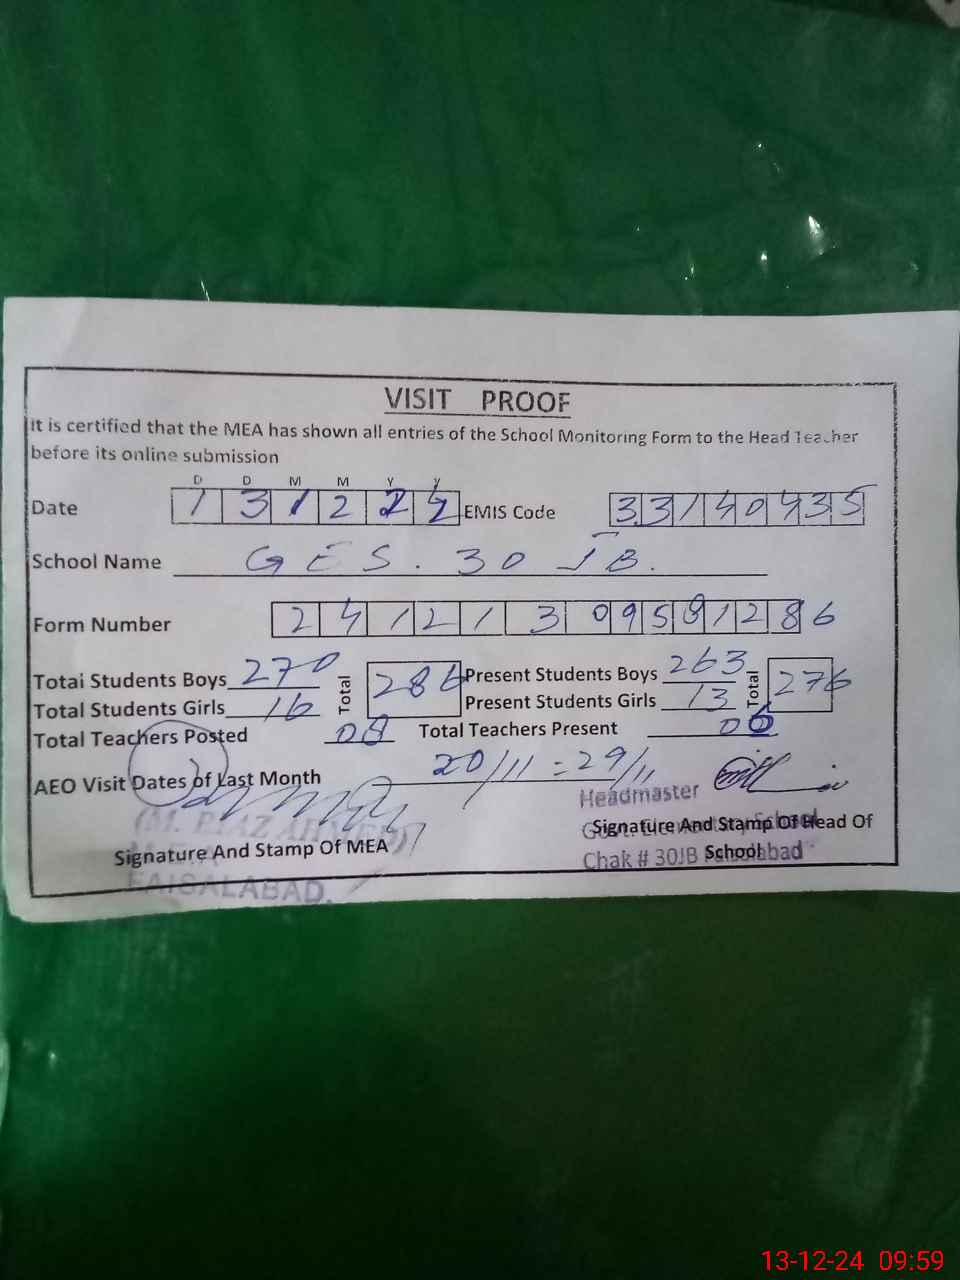 VISIT PROOF
It is certified that the MEA has shown all entries of the School Monitoring Form to the Head Teacher
before its online submission
D D M M Y Y
Date 1 3 1 2 2 4 EMIS Code 3 3 1 4 0 4 3 5
School Name GES. 30 JB.
Form Number 2 4 1 2 1 3 0 9 5 8 1 2 8 6
Total Students Boys 270 Total 286 Present Students Boys 263 Total 276
Total Students Girls 16 Present Students Girls 13
Total Teachers Posted 08 Total Teachers Present 06
AEO Visit Dates of Last Month 20/11 = 29/11
Headmaster
(M. RIAZ AHMED)
Signature And Stamp Of MEA Signature And Stamp Of Head Of
School
Govt. Elementary School
Chak # 30JB Faisalabad
FAISALABAD.
13-12-24 09:59